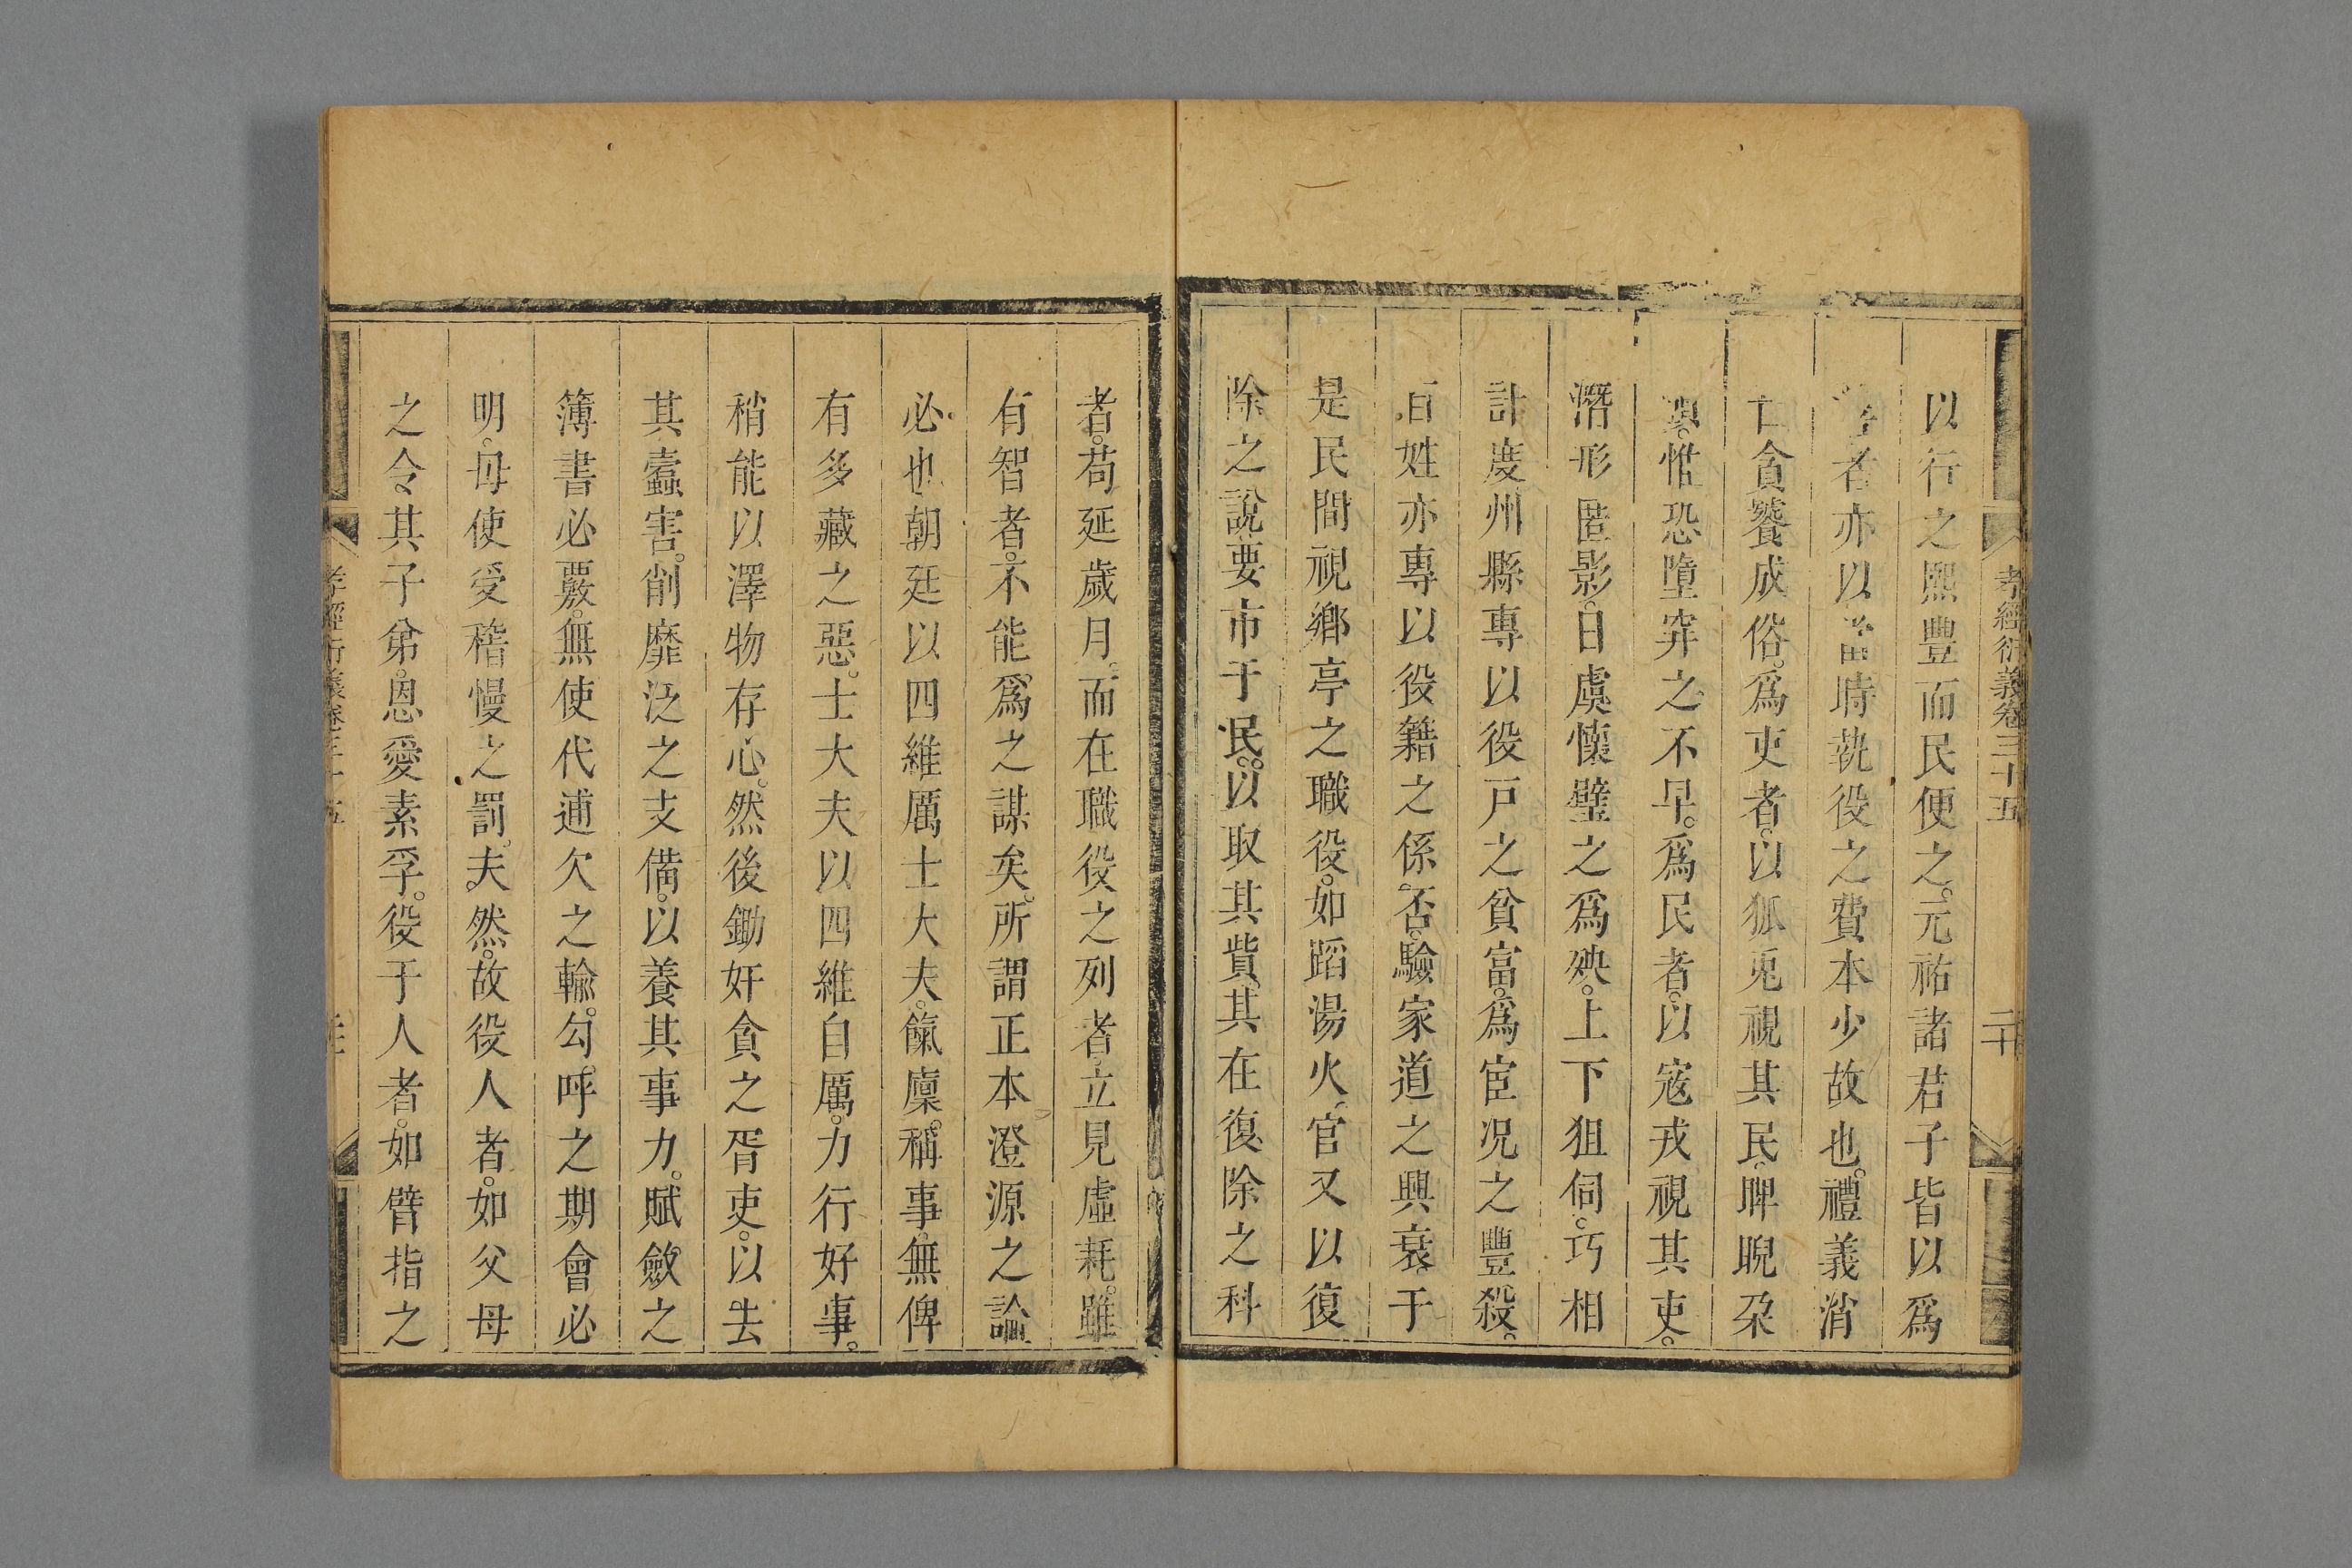 孝經衍義卷三十五
二十
以行之熙豐而民便之。元祐諸君子皆以爲
者亦以當時執役之費本少故也。禮義消
亡貪饕成俗。爲吏者。以狐兎視其民。睥睨朶
惟恐墮穽之不早。爲民者。以寇戎視其吏。
潛形匿影。日虞懷璧之爲殃。上下狙伺。巧相
計度州縣專以役戸之貧富。爲宦况之豐殺。
百姓亦專以役籍之係否。驗家道之興衰。于
是民間視鄉亭之職役。如蹈湯火。官又以復
除之說。要市于民。以取其貲。其在復除之科
者。苟延歲月。而在職役之列者。立見虛耗。雖
有智者。不能爲之謀矣。所謂正本澄源之論
必也。朝廷以四維厲士大夫。餼廩稱事。無俾
有多藏之惡。士大夫以四維自厲。力行好事。
稍能以澤物存心。然後鋤奸貪之胥吏。以去
其蠹害。削靡泛之支備。以養其事力。賦斂之
簿書必覈。無使代逋欠之輸。勾呼之期會必
明。毋使受稽慢之罰。夫然。故役人者。如父母
之令其子弟。恩愛素孚。役于人者。如臂指之